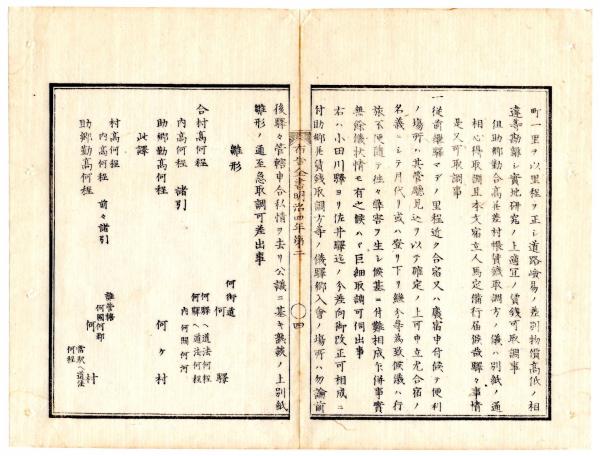 町一里ヲ以里程ヲ正シ道路嶮易ノ差別物價高低ノ相
違等勘雜シ實地研究ノ上適宜ノ賃錢可取調事
但助郷勤合高差村帳賃錢取調方ノ儀ハ別紙ノ通
相心得取調且本文宿立人馬定備行届候哉驛々事情
是又可取調事
一從前繼驛マテノ里程近ク合宿又ハ廣宿申付候テ便利
ノ場所ハ其管聽見込ヲ以テ確定ノ上可申立尤合宿ノ
名義ニシテ月代リ或ハ登リ下リ繼分等為致候儀ハ行
旅不便隨テ往々弊害ヲ生シ候基ニ付難相成乍併事實
無餘儀狀情モ有之候ハヽ巨細取調可伺出事
右ハ小田川驛ヨリ佐井驛迄ノ分差向御改正可相成ニ
付助郷并賃錢取調方等ノ儀驛郷入會ノ場所ハ勿論前
布告全書明治四年第二
四
後驛々管轄申合私情ヲ去リ公議ニ基キ熟議ノ上別紙
雛形ノ通至急取調可差出事
雛形
何街道
何驛
何驛ヘ道法何程
何驛ヘ道法何程
内何間何河
合村高何程
内高何程 諸引
助郷勤高何程
何ヶ村
此譯
誰管轄
何國何郡
何村
當驛ヘ道法
何程
村高何程
内高何程 前々諸引
助郷勤高何程